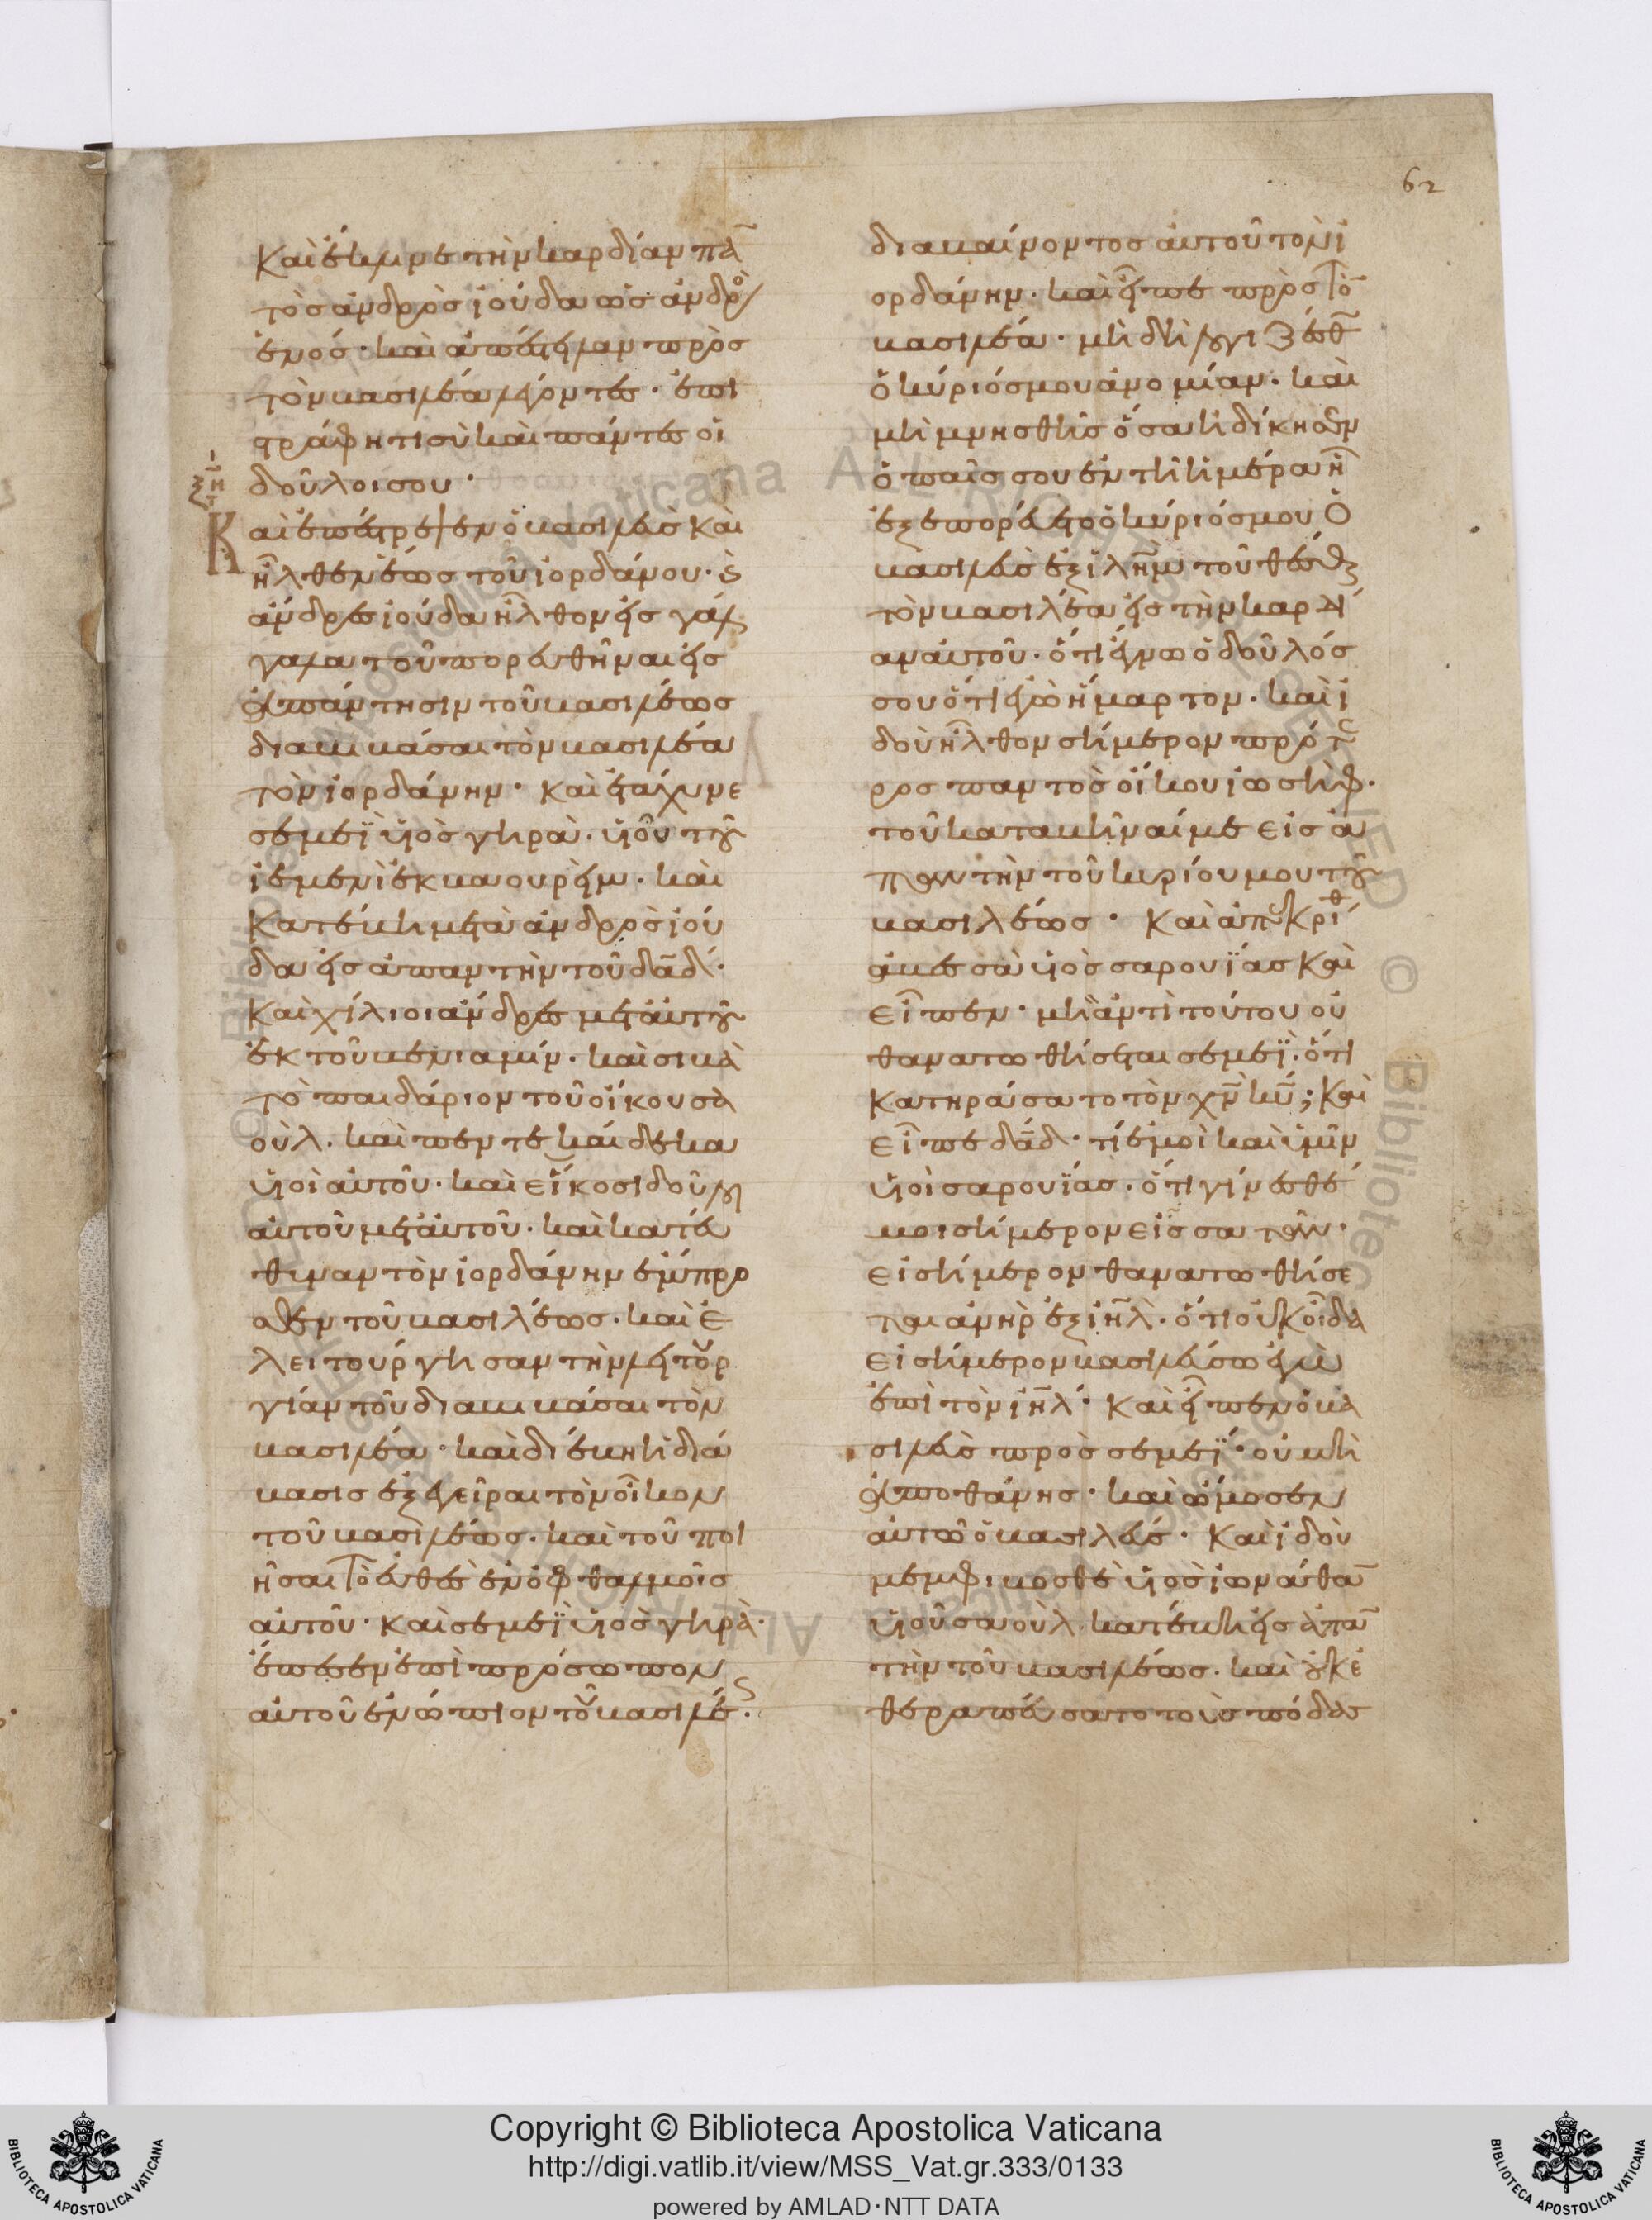 62
Καὶ ἔκλινε τὴν καρδίαν πᾶ
τὸς ἀνδρὸς ἰούδα ὡς ἀνδρὸ
ἑνός· καὶ ἀπέστειλαν πρὸς
τὸν βασιλέα λέγοντες· ἐπι
στράφητι σὺ καὶ πάντες οἱ
δοῦλοι σου·
Καὶ ἐπέστρεψεν ὁ βασιλεὺς καὶ
ἦλθεν ἕως τοῦ ἰορδάνου· Ϛ
ἄνδρες ἰούδα ἦλθον εἰς γάλ
γαλα τοῦ πορευθῆναι εἰς
ἀπάντησιν τοῦ βασιλέως
διαβιβάσαι τὸν βασιλέα
τὸν ἰορδάνην· Καὶ ἐτάχυνε
σεμεῒ ὑιὸς γηρὰ· ὑιοῦ τοῦ
ἰεμενὶ ἐκ βαουρὲιμ· καὶ
Κατέβη μετὰ ἀνδρὸς ἰού
δα εἰς ἀπαντὴν τοῦ δᾱδ·
Καὶ χίλιοι ἄνδρες μετ' ἀυτοῦ
ἐκ τοῦ βενιαμίν· καὶ σιβὰ
τὸ παιδάριον τοῦ οἴκου σα
οὺλ· καὶ πέντε καίδεκα
ὑιοὶ ἀυτοῦ· καὶ εἴκοσι δοῦλοι
ἀυτοῦ μετ' ἀυτοῦ· καὶ κατεύ
θυναν τὸν ἰορδάνην ἔμπρο
σθεν τοῦ βασιλέως· καὶ ἐ
λειτούργησαν τὴν λειτουρ
γίαν τοῦ διαβιβάσαι τὸν
βασιλέα· καὶ διέβη ἡ διά
βασις ἐξεγεῖραι τὸν οἶκον
τοῦ βασιλέως· καὶ τοῦ ποι
ῆσαι τὸ ἐυθὲς ἐν ὀφθαλμοῖς
ἀυτοῦ· Καὶ σεμεῒ ὑιὸς γηρὰ·
ἔπεσεν ἐπὶ πρόσωπον
ἀυτοῦ ἐνώπιον τοῦ βασιλέως·
διαβαίνοντος ἀυτοῦ τὸν ἰ
ορδάνην· καὶ εἶπε πρὸς τὸ
βασιλέα· μὴ δὴ λογιζέσθω
ὁ κύριός μου ἀνομίαν· καὶ
μὴ μνησθῆς ὅσα ἠδίκησεν
ὁ παῖς σου ἐν τῆ ἡμέρα ἧ
ἐξεπορεύετο ὁ κύριός μου Ὁ
βασιλεὺς ἐξ ιλη̄μ τοῦ θέσθαι
τὸν βασιλέα εἰς τὴν καρδί
αν ἀυτοῦ· ὅτι ἔγνω ὁ δοῦλός
σου ὅτι ἐγὼ ἥμαρτον· καὶ ἰ
δοὺ ἦλθον σήμερον πρότε
ρος παντὸς οἴκου ἰωσὴφ·
τοῦ καταβῆναί με εἰς ἀ
παντὴν τοῦ κυρίου μου τοῦ
βασιλέως· Καὶ ἀπεκρίθ
ἀβεσσὰ ὑιὸς σαρουΐας Καὶ
εἶπεν· μὴ ἀντὶ τούτου οὐ
θανατωθήσεται σεμεῒ· ὅτι
Κατηράσατο τὸν χν̄ κῡ; Καὶ
εἶπε δᾱδ· τί ἐμοὶ καὶ ὑμῖν
ὑιοὶ σαρουΐας· ὅτι γίνεσθέ
μοι σήμερον εἰς σατᾶν·
εἰ σήμερον θανατωθήσε
ται ἀνὴρ ἐξ ιη̄λ· ὅτι οὐκ οἶδα
εἰ σήμερον βασιλεύσω ἐγὼ
ἐπὶ τὸν ιη̄λ· Καὶ εἶπεν ὁ βα
σιλεὺς πρὸς σεμεῒ· οὐ μὴ
ἀποθάνης· καὶ ὤμοσεν
ἀυτῶ ὁ βασιλεύς· Καὶ ἰδοὺ
μεμφιβοσθὲ ὑιὸς ἰωνάθα
ὑιοῦ σαοὺλ κατέβη εἰς ἀπᾱ
τὴν τοῦ βασιλέως· καὶ οὐκ ἐ
θεράπευσατο τοὺς πόδας
Copyright © Biblioteca Apostolica Vaticana
http://digi.vatlib.it/view/MSS_Vat.gr.333/0133
powered by AMLAD·NTT DATA